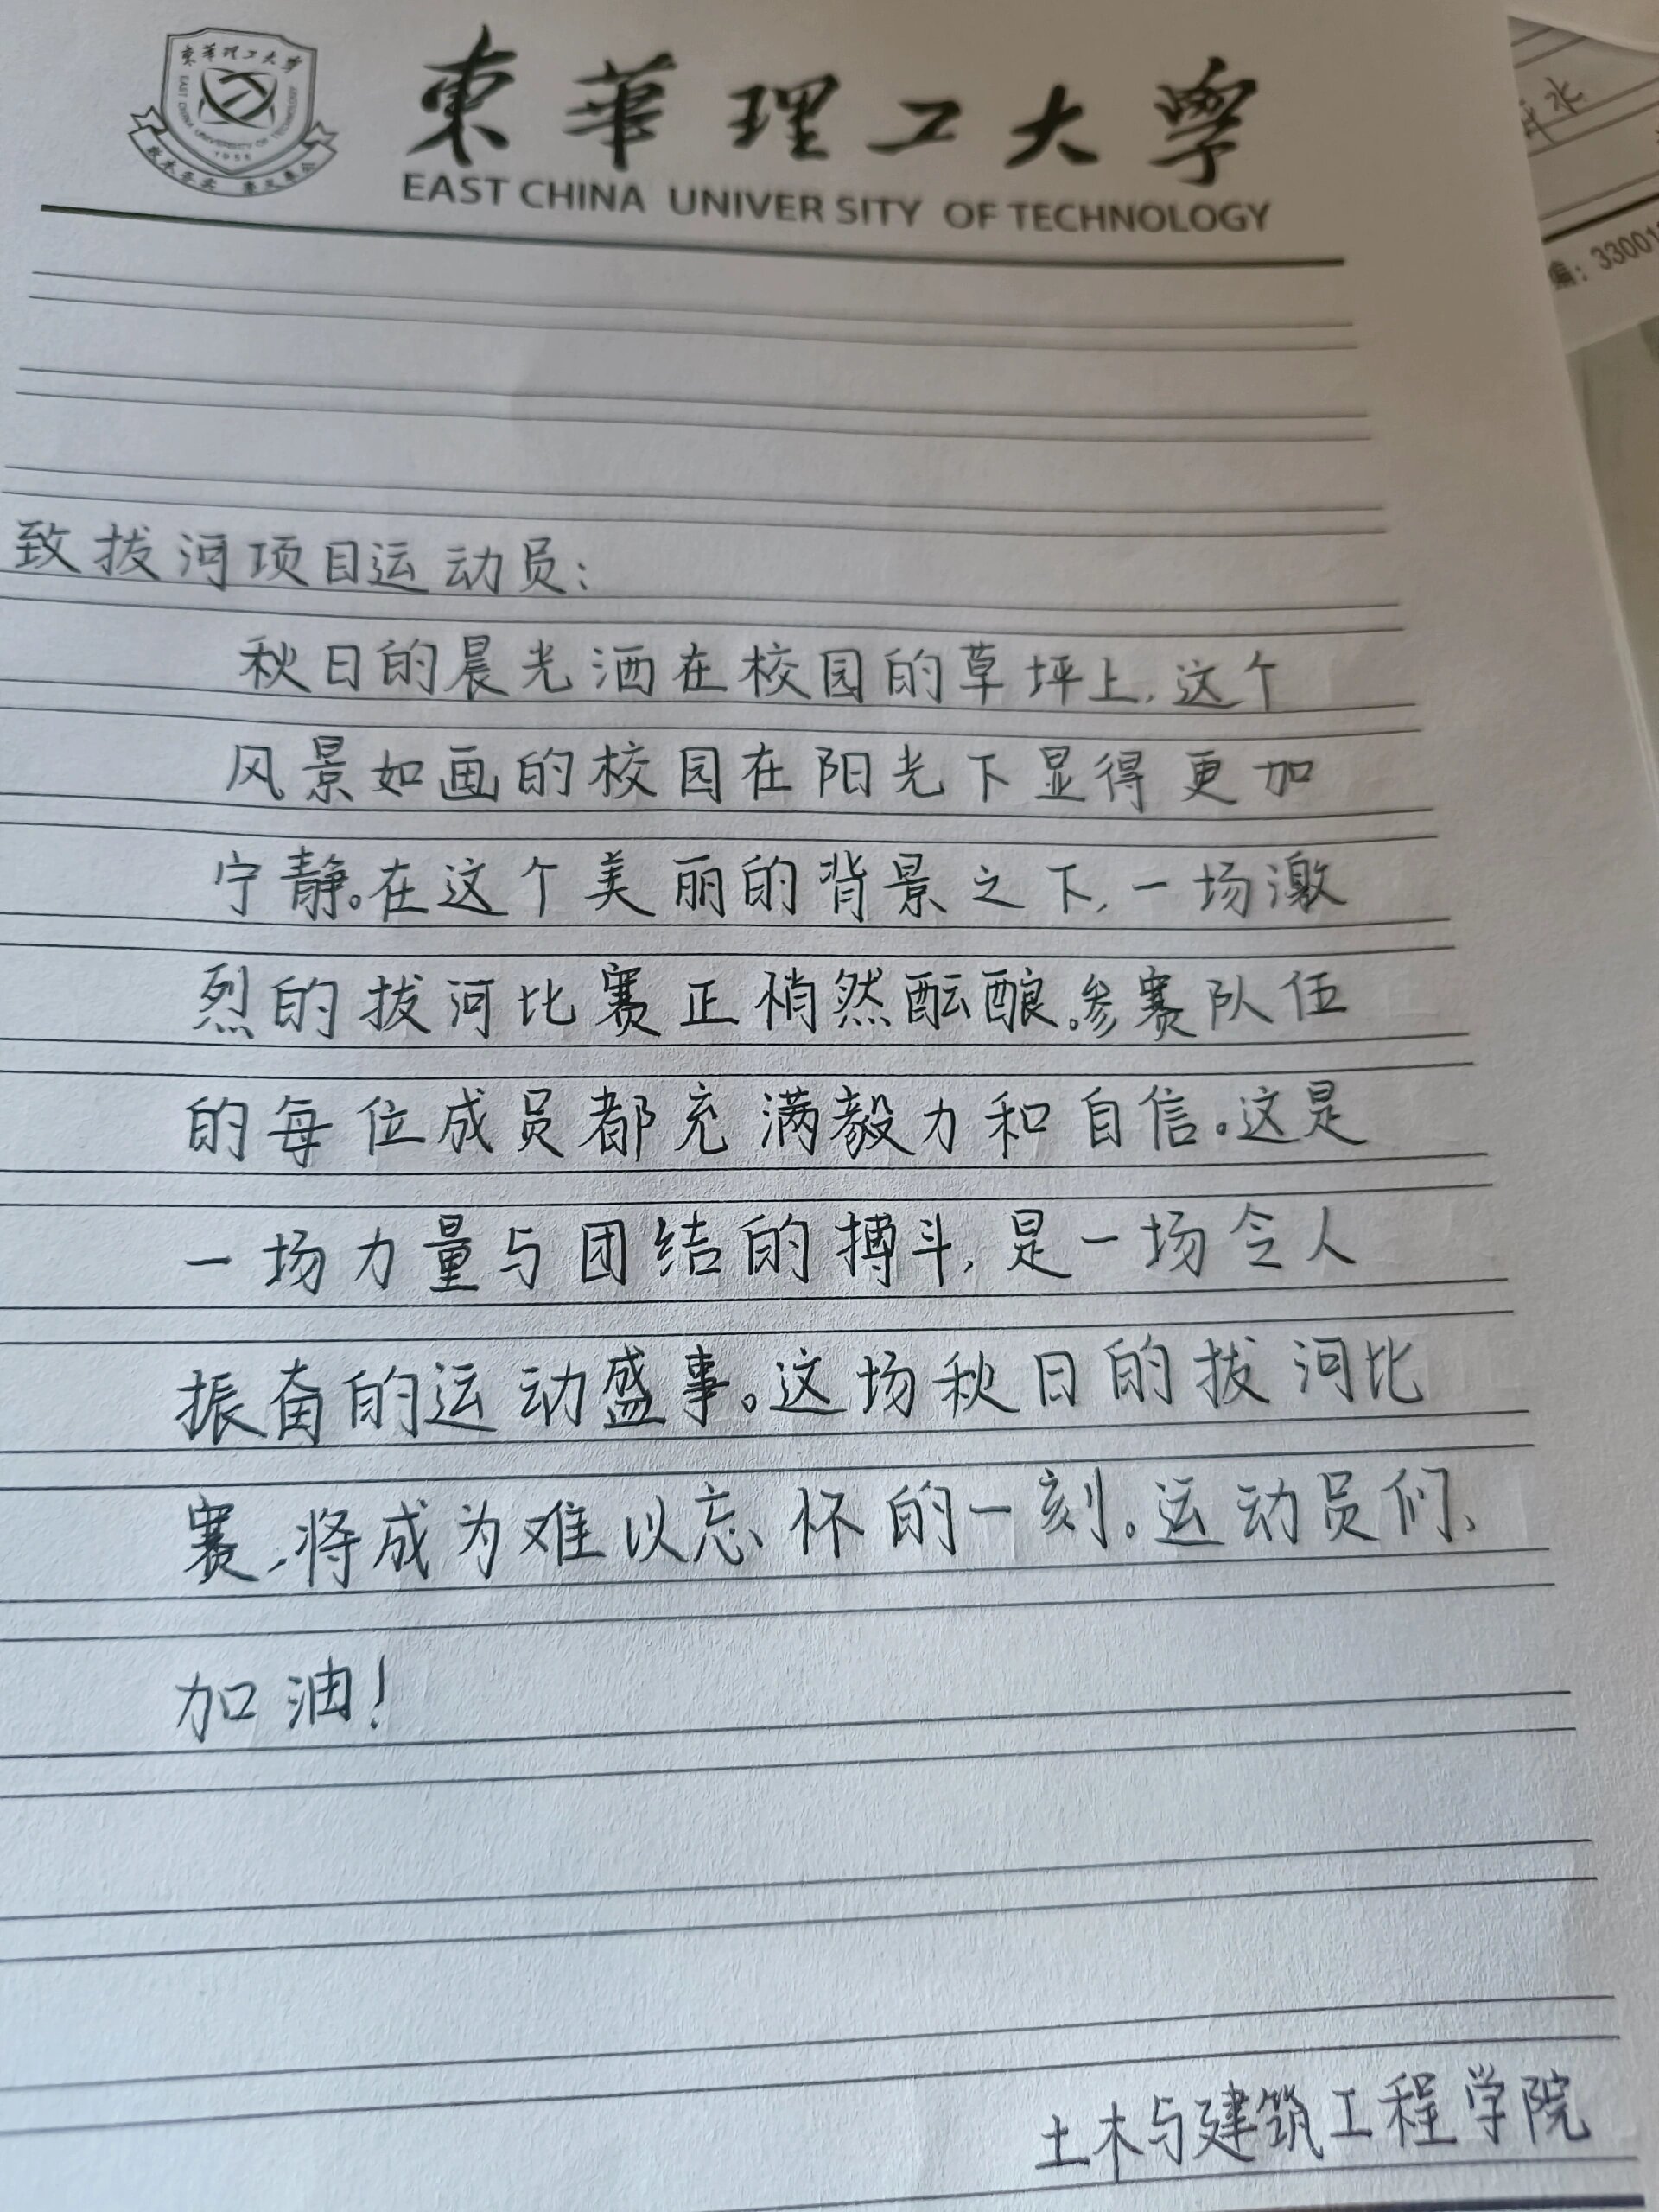 東華理工大學
EAST CHINA UNIVERSITY OF TECHNOLOGY
東華理工大學
EAST CHINA UNIVERSITY OF TECHNOLOGY
1956
致拔河项目运动员:
秋日的晨光洒在校园的草坪上,这个
风景如画的校园在阳光下显得更加
宁静。在这个美丽的背景之下,一场激
烈的拔河比赛正悄然酝酿。参赛队伍
的每位成员都充满毅力和自信。这是
一场力量与团结的搏斗,是一场令人
振奋的运动盛事。这场秋日的拔河比
赛,将成为难以忘怀的一刻。运动员们、
加油!
土木与建筑工程学院
编:33001